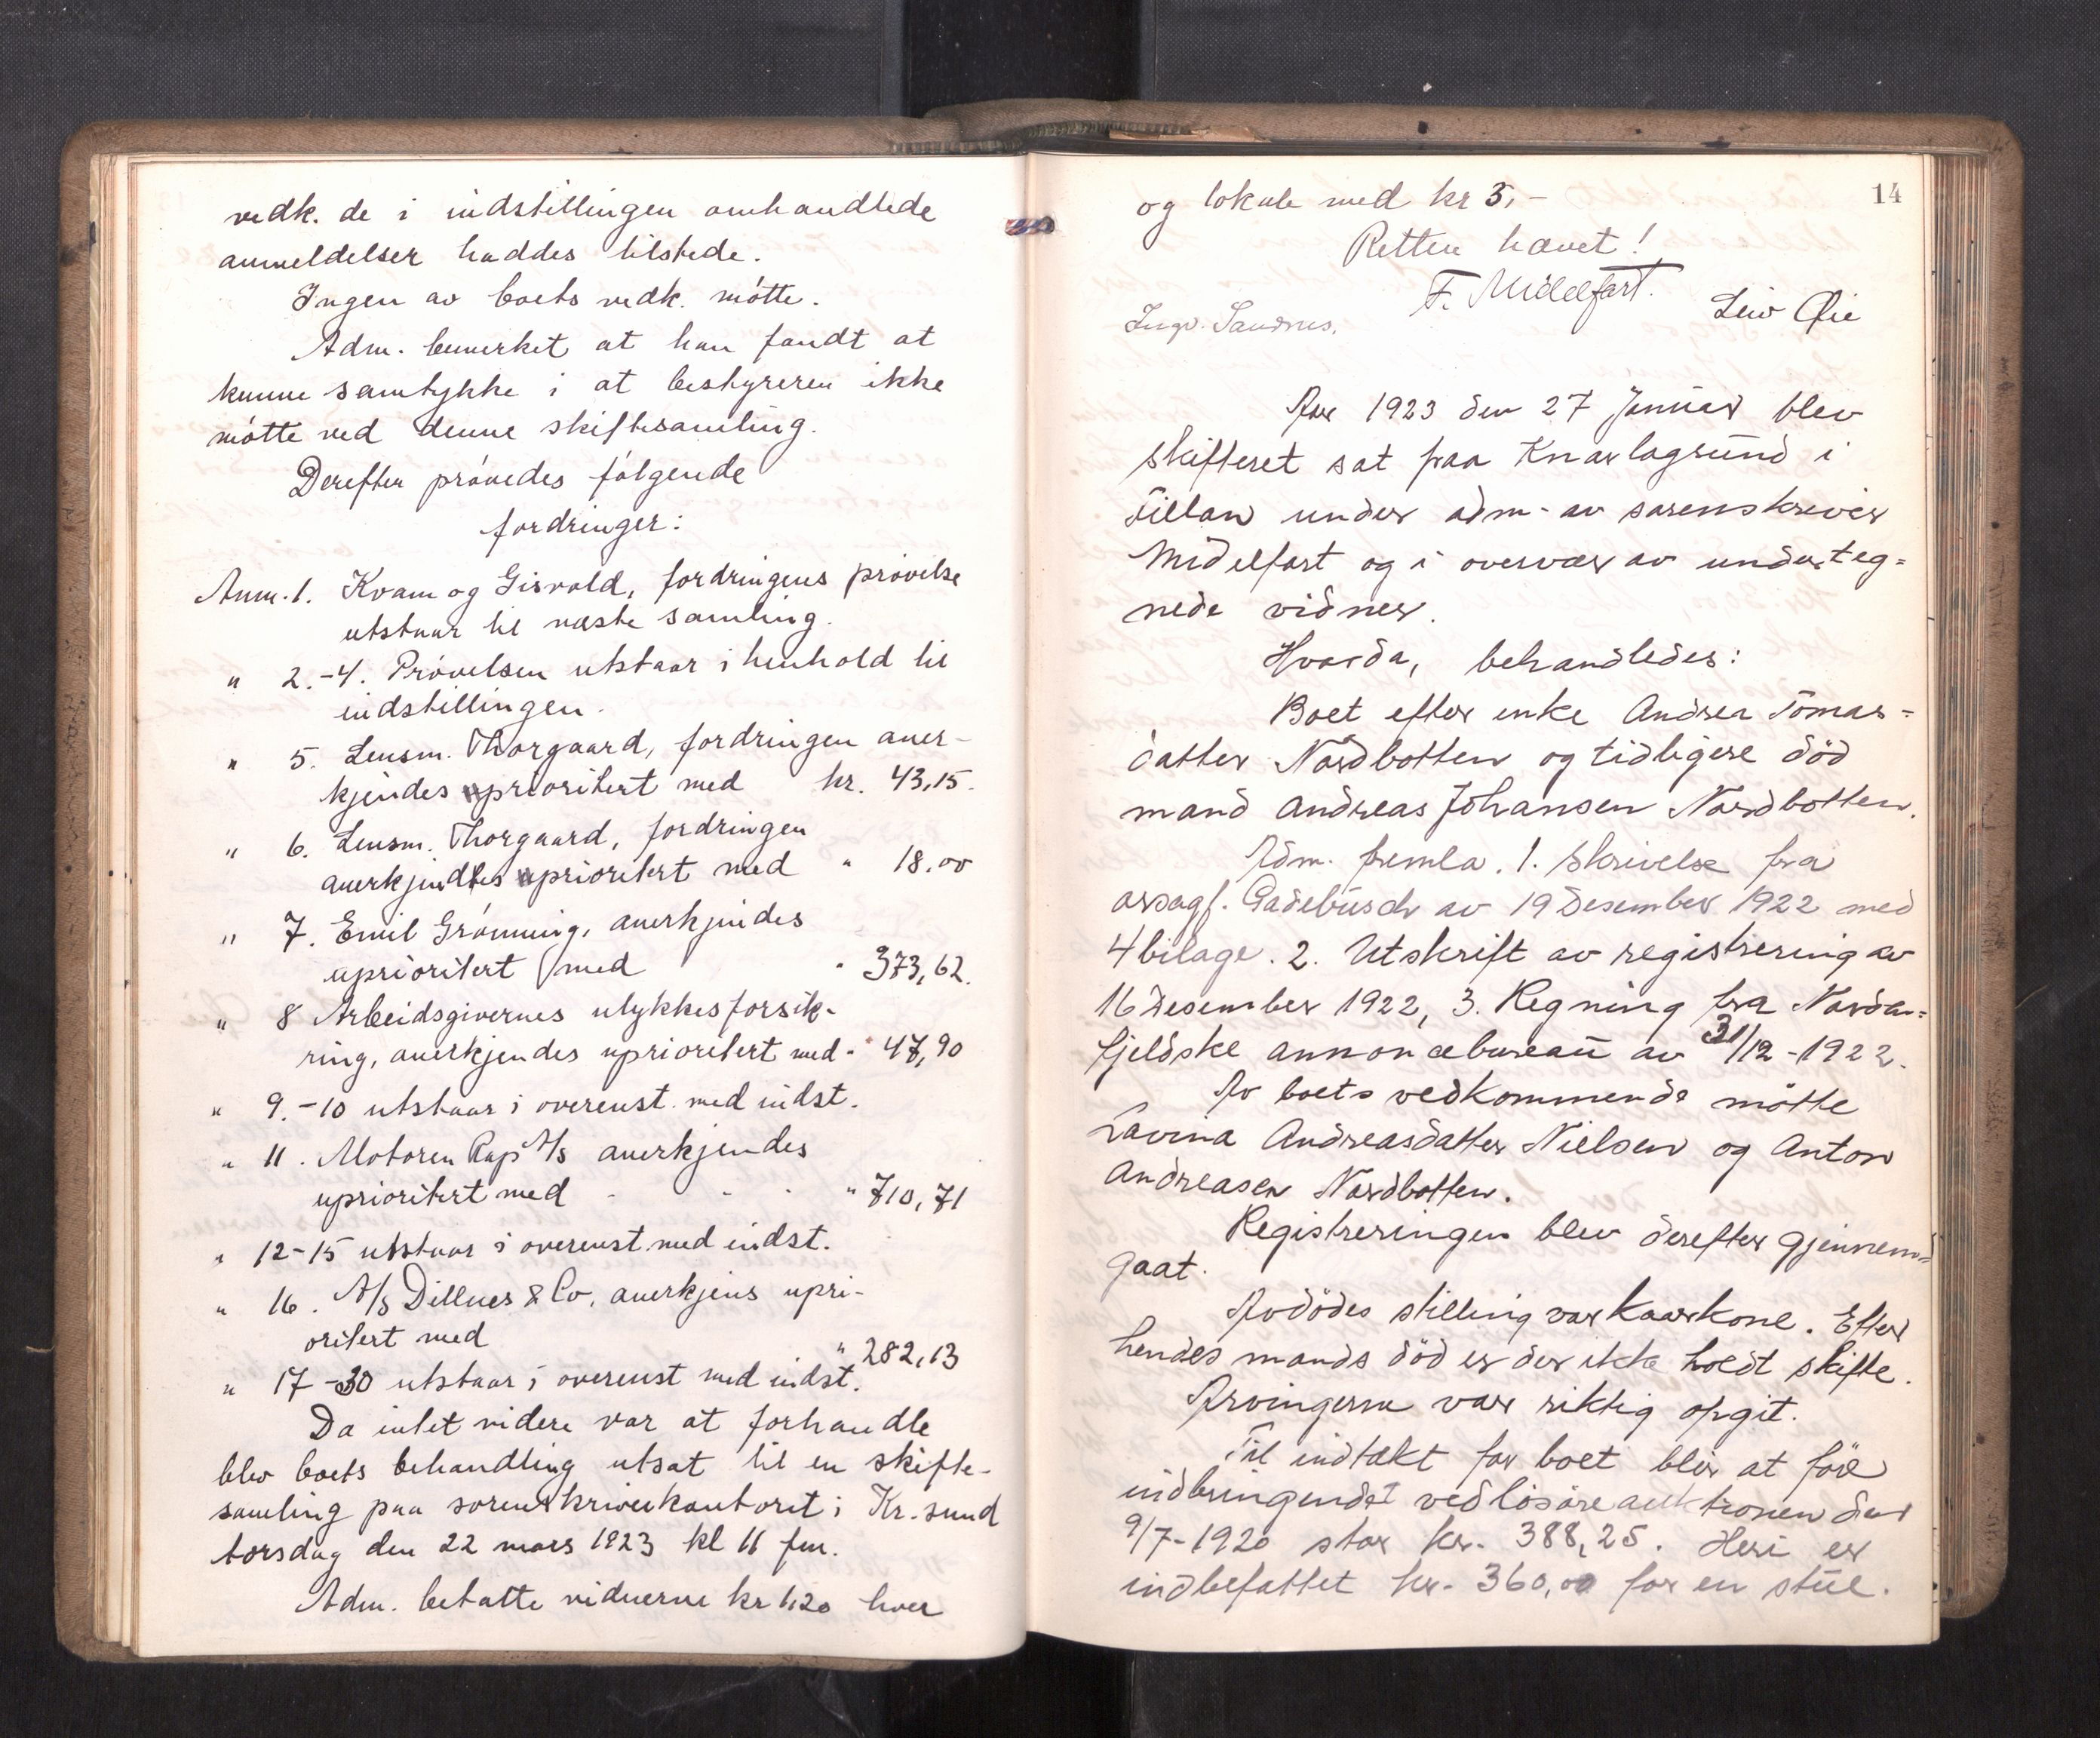 vedk. de i indstillingen omhandlede
anmeldelser haddes tilstede.
Ingen av boets vedk. møtte.
Adm. bemerket at han fandt at
kunne samtykke i at bestyreren ikke
møtte ved denne skiftesamling.
Derefter prøvedes følgende
fordringer:
Anm. 1. Kvam og Gisvold, fordringens prøvelse
utstaar til næste samling.
" 2.-4. Prøvelsen utstaar i henhold til
indstillingen.
" 5. Lensm. Thorgaard, fordringen aner-
kjendes uprioritert med kr. 43,15.
" 6. Lensm. Thorgaard, fordringen
anerkjendtes uprioritert med " 18.00
" 7. Emil Grønning, anerkjendes
uprioritert med " 373,62.
" 8 Arbeidsgivernes ulykkesforsik-
ring, anerkjendes uprioritert med - " 47,90
" 9.-10 utstaar i overenst. med indst.
" 11. Motoren Rap A/S anerkjendes
uprioritert med - - - " 710,71
" 12-15 utstaar i overenst. med indst.
" 16. A/S Dillner & Co, anerkjens upri-
oritert med " 282,13
" 17-30 utstaar i overenst med indst.
Da intet videre var at forhandle
blev boets behandling utsat til en skifte-
samling paa sorenskriverkontoret i Kr.sund
torsdag den 22 mars 1923 kl 11 fm.
Adm. betatte vidnerne kr 1,20 hver
14
og lokale med kr 3,-
Retten hævet!
F. Midelfart.
Ingv. Sandnes. Leiv Øie
Aar 1923 den 27 Januar blev
skifteret sat paa Knarlagsund i
Fillan under adm. av sorenskriver
Midelfart og i overvær av underteg=
nede vidner.
Hvorda, behandledes:
Boet efter enke Andrea Tomas=
datter Nordbotten og tidligere død
mand Andreas Johansen Nordbotten.
Adm. fremla. 1. Skrivelse fra
orsagf. Gadebusch av 19 Desember 1922 med
4 bilage. 2. Utskrift av registrering av
16 Desember 1922, 3. Regning fra Nordan=
fjeldske annoncebureau av 31/12-1922.
Av boets vedkommende møtte
Lavina Andreasdatter Nielsen og Anton
Andreasen Nordbotten.
Registreringen blev derefter gjennem=
gaat.
Avdødes stilling var kaarkone. Efter
hendes mands død er der ikke holdt skifte.
Arvingerne var riktig opgit.
Til indtækt for boet blir at føre
indbringendet ved løsøreauktionen den
9/7-1920 stor kr. 388,25. Heri er
indbefattet kr. 360,00 for en stue.